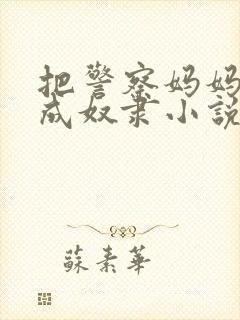 把警察妈妈
成奴隶小说
蘇素華